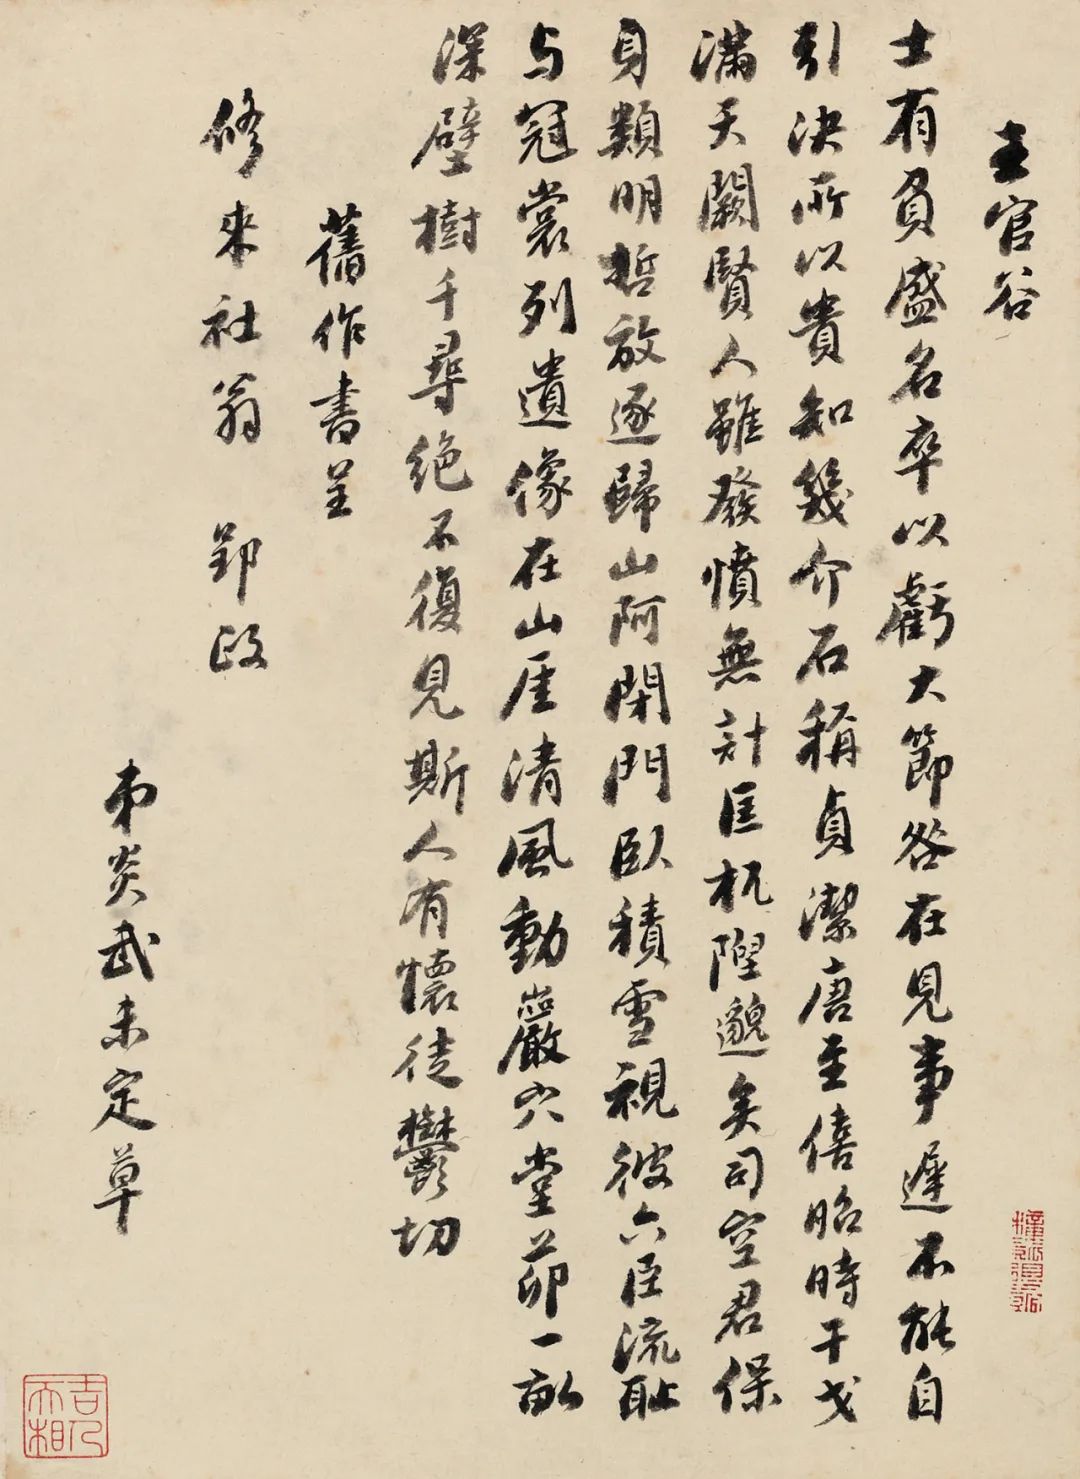 王官谷
士有負盛名卒以虧大節咎在見事遲不能自
引決所以貴知幾介石稱貞潔唐至僖昭時干戈
滿天闕賢人雖發憤無計匡杌隉邈矣司空君保
身類明哲放逐歸山阿閉門臥積雪視彼六臣流恥
与冠裳列遺像在山厓清風動巖穴堂茆一畝
深壁樹千尋絕不復見斯人有懷徒鬱切
舊作書呈
修來社翁 郢政
弟炎武未定草
吉人天相